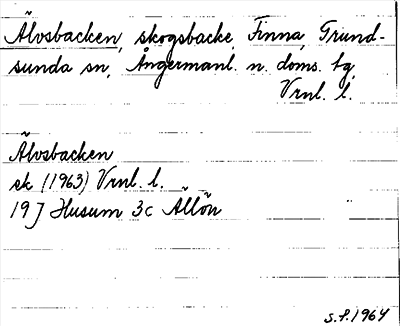 Älvsbacken, skogsbacke, Finna, Grund-
sunda sn, Ångermanl. n. doms. tg,
Vrnl. l.
Älvsbacken
sk (1963) Vrnl. l.
19 J Husum 3c Ällön
S.f. 1964